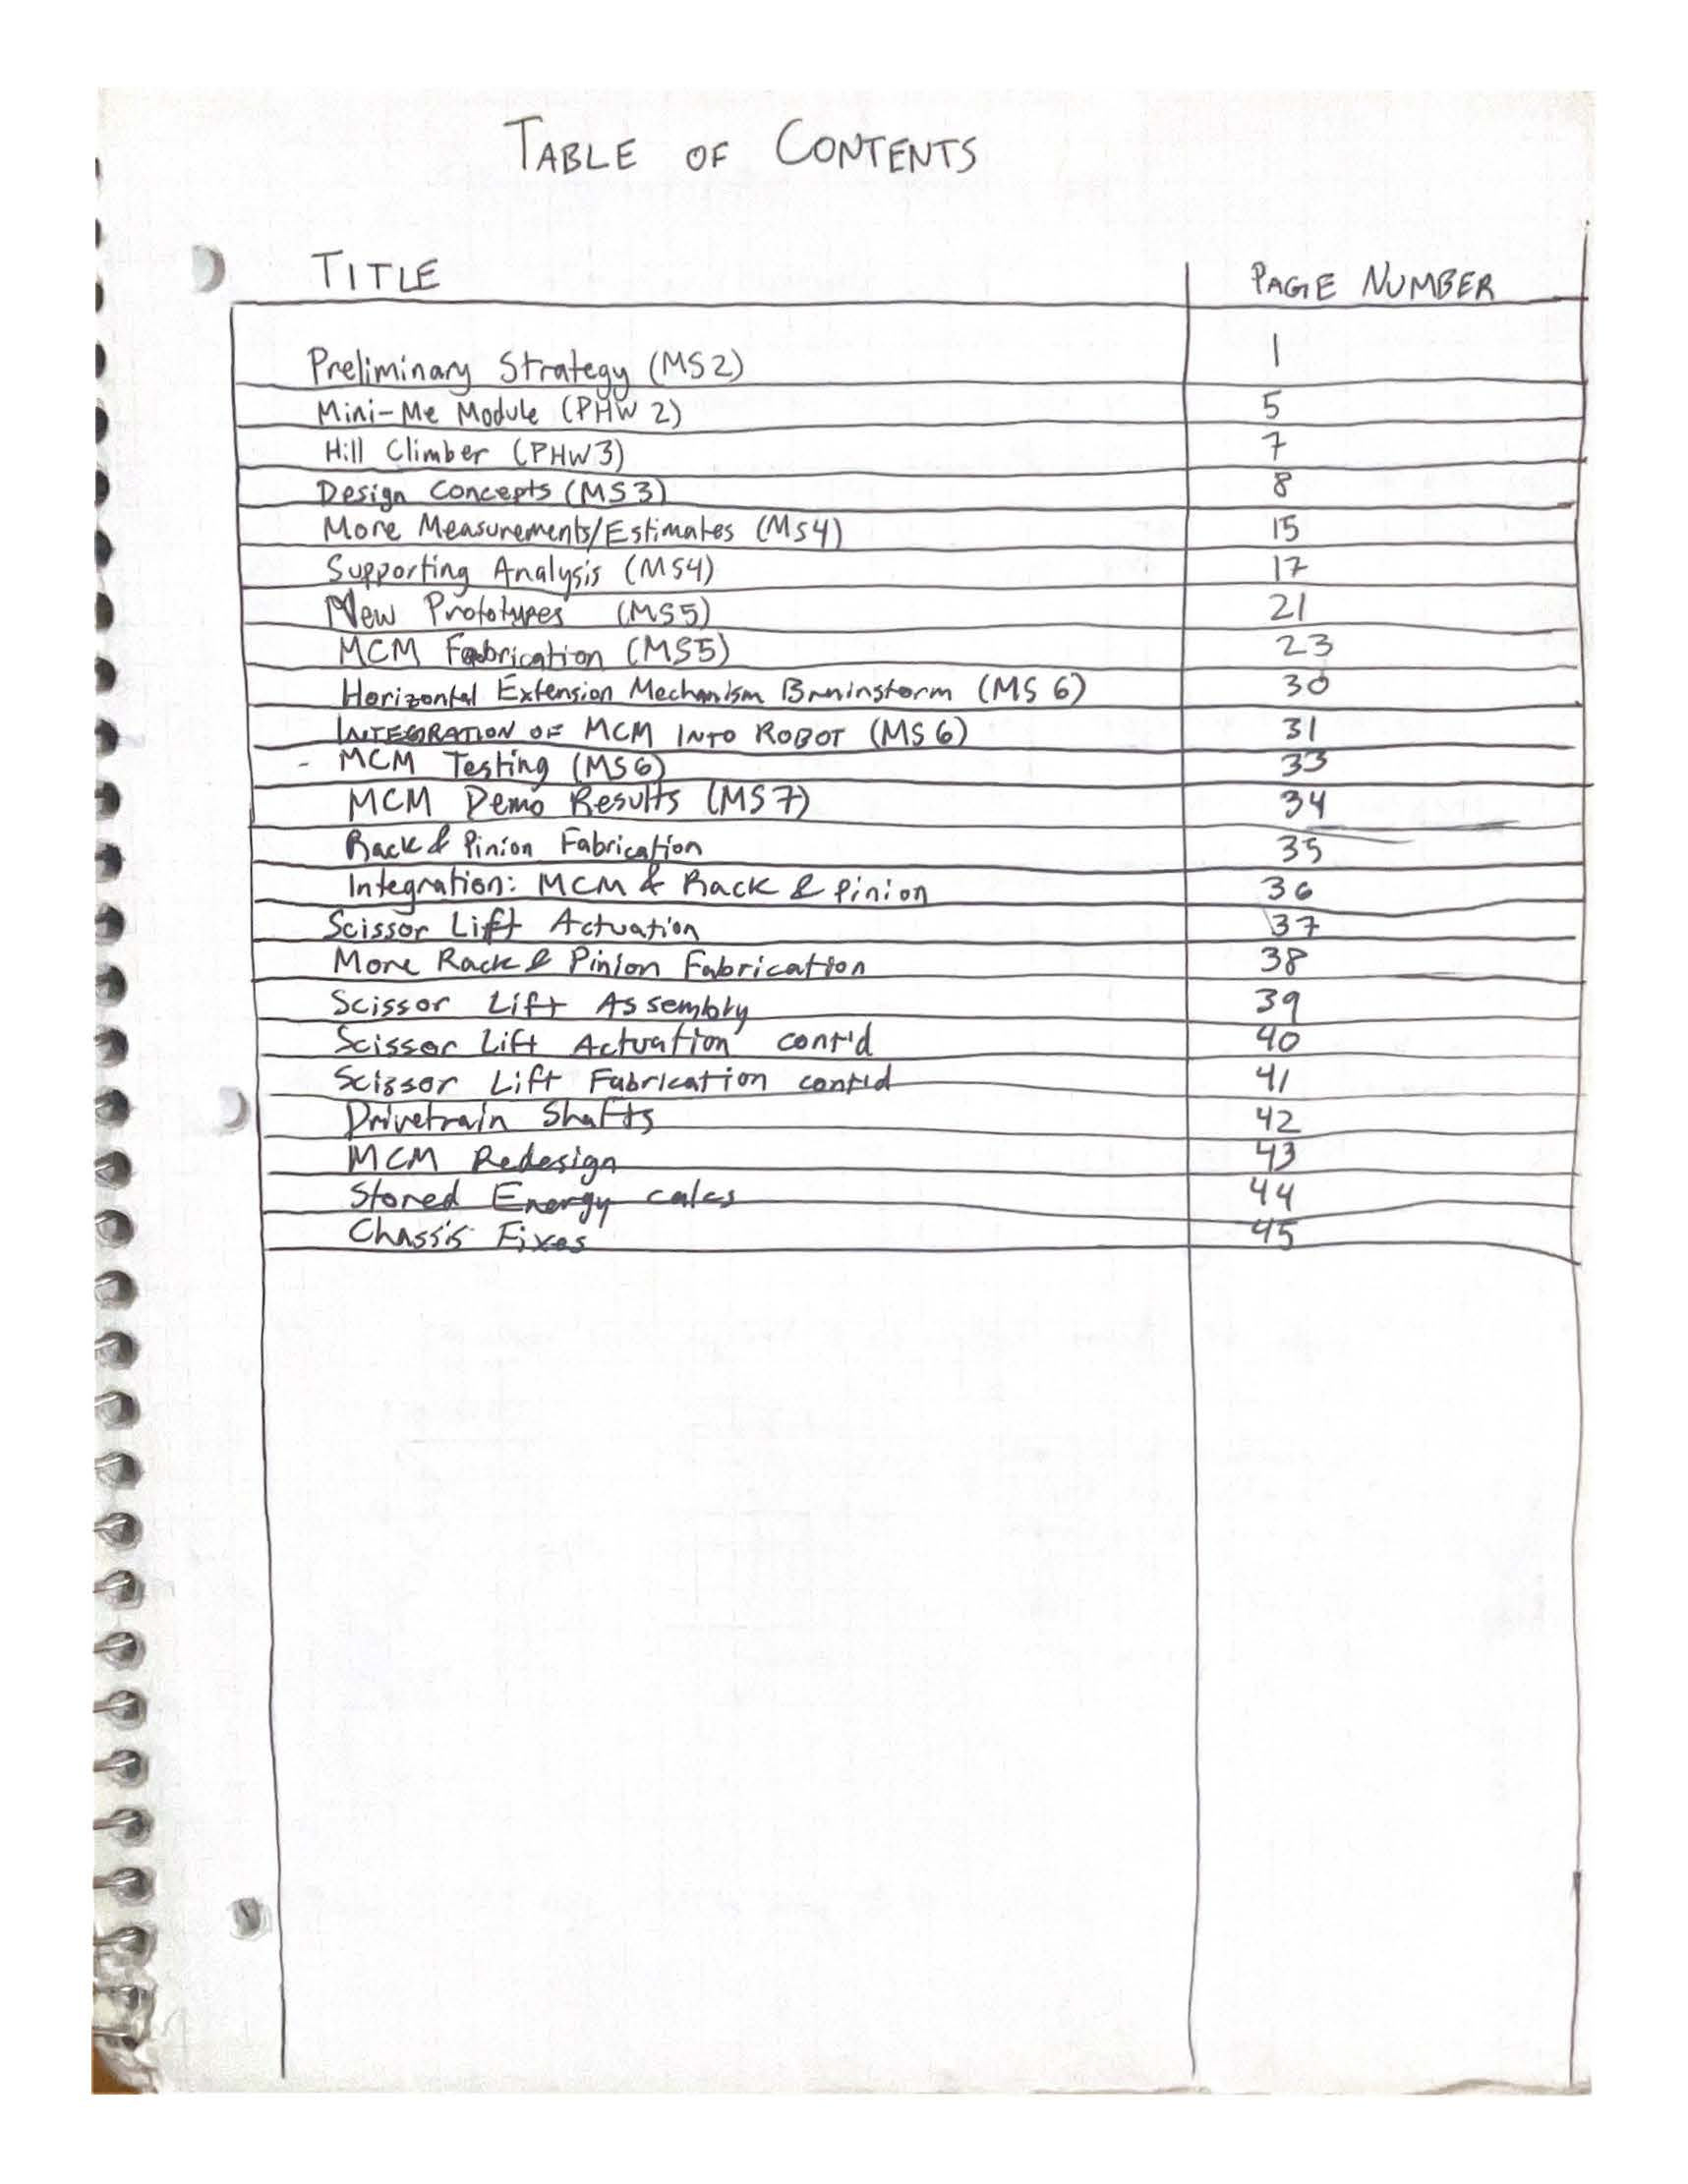 TABLE OF CONTENTS
TITLE PAGE NUMBER
Preliminary Strategy (MS2) 1
Mini-Me Module (PHW 2) 5
Hill Climber (PHW3) 7
Design Concepts (MS3) 8
More Measurements/Estimates (MS4) 15
Supporting Analysis (MS4) 17
New Prototypes (MS5) 21
MCM Fabrication (MS5) 23
Horizontal Extension Mechanism Brainstorm (MS 6) 30
INTEGRATION OF MCM INTO ROBOT (MS 6) 31
- MCM Testing (MS6) 33
MCM Demo Results (MS7) 34
Rack & Pinion Fabrication 35
Integration: MCM & Rack & Pinion 36
Scissor Lift Actuation 37
More Rack & Pinion Fabrication 38
Scissor Lift Assembly 39
Scissor Lift Actuation cont'd 40
Scissor Lift Fabrication cont'd 41
Drivetrain Shafts 42
MCM Redesign 43
Stored Energy calcs 44
Chassis Fixes 45